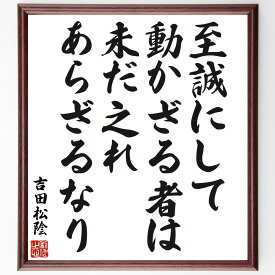 至誠にして
動かざる者は
未だ之れ
あらざるなり
吉田松陰